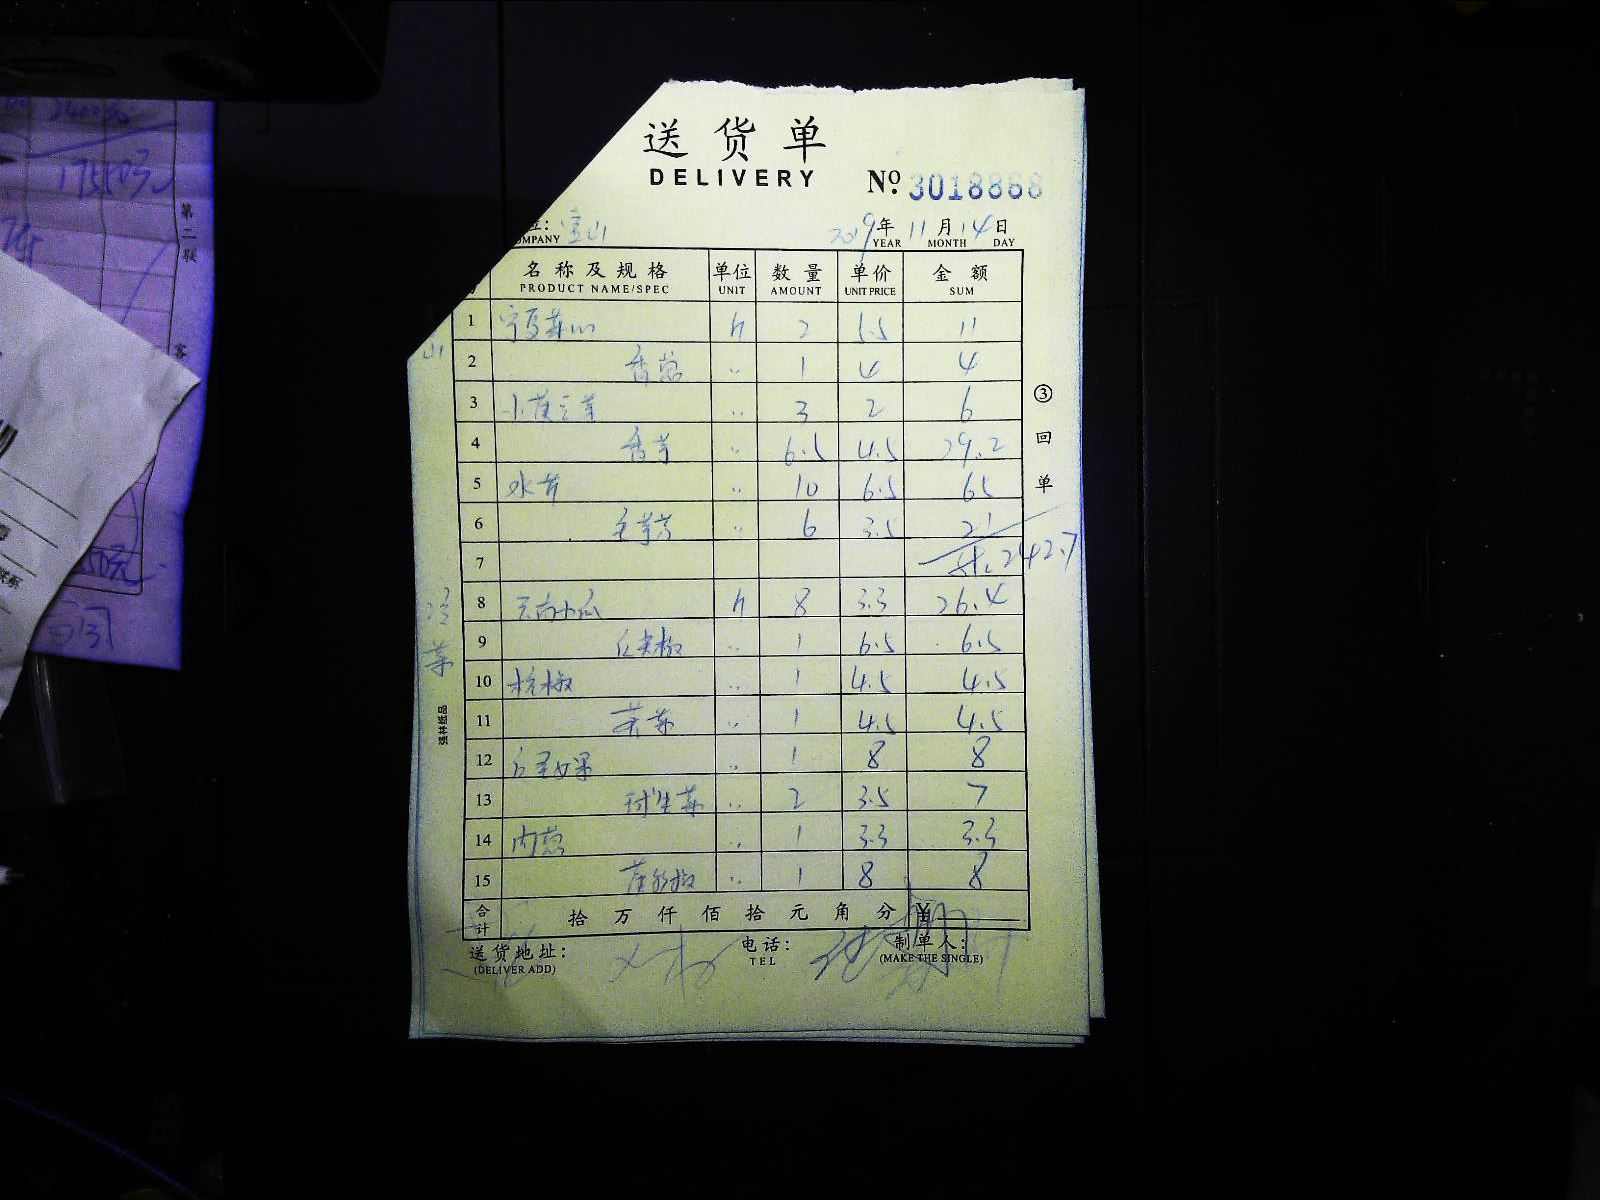 送货单
DELIVERY
No. 3018868
位: 富山 2019年 11月 14日
OMPANY YEAR MONTH DAY
名称及规格 单位 数量 单价 金额
PRODUCT NAME/SPEC UNIT AMOUNT UNIT PRICE SUM
1 宁夏菜心 斤 2 5.5 11
2 香葱 〃 1 4 4
3 小黄豆芽 〃 3 2 6
4 香芋 〃 6.5 4.5 29.2
5 水芹 〃 10 6.5 65
6 毛芋艿 〃 6 3.5 21
7 计: 242.7
8 云南小瓜 斤 8 3.3 26.4
9 红尖椒 〃 1 6.5 6.5
10 杭椒 〃 1 4.5 4.5
11 〃 1 4.5 4.5
12 〃 1 8 8
13 球生菜 〃 2 3.5 7
14 内葱 〃 1 3.3 3.3
15 黄彩椒 〃 1 8 8
合计 拾万仟佰拾元角分 ¥
送货地址: 电话: 制单人:
(DELIVER ADD) TEL (MAKE THE SINGLE)
③回单
山
冷菜
强林纸品
第二联
客
17550元